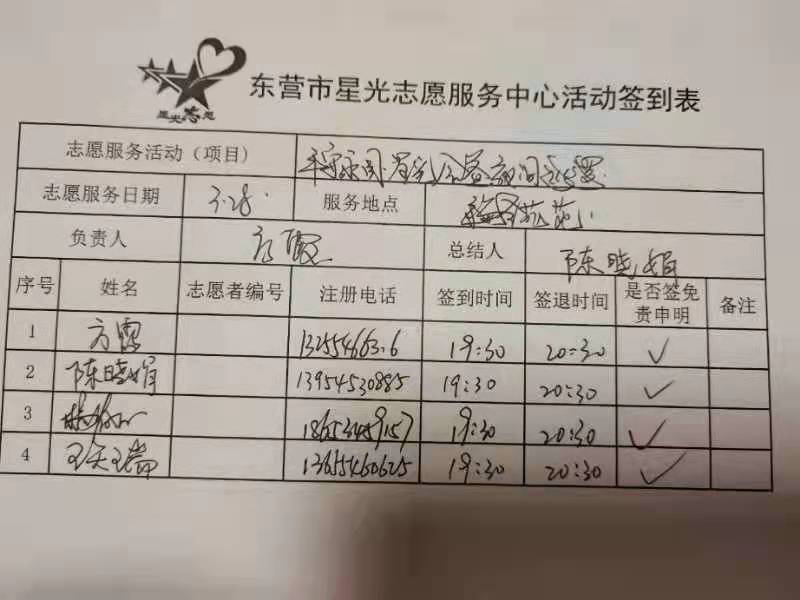 星光志愿
东营市星光志愿服务中心活动签到表
志愿服务活动（项目）
志愿服务日期 3.28. 服务地点
负责人 方霞 总结人 陈晓娟
序号 姓名 志愿者编号 注册电话 签到时间 签退时间 是否签免责申明 备注
1 方霞 19:30 20:30 ✓
2 陈晓娟 13954530885 19:30 20:30 ✓
3 18653459157 19:30 20:30 ✓
4 王天瑞 13655460625 19:30 20:30 ✓